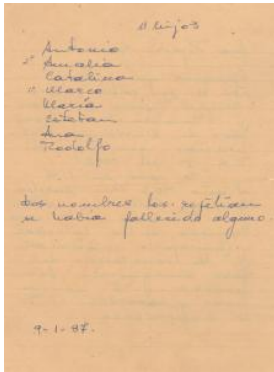 11 hijos
Antonio
2ª Amalia
Catalina
1º Marco
María
Esteban
Ana
Rodolfo
Los nombres los repetían
si había fallecido alguno.
9-1-87.